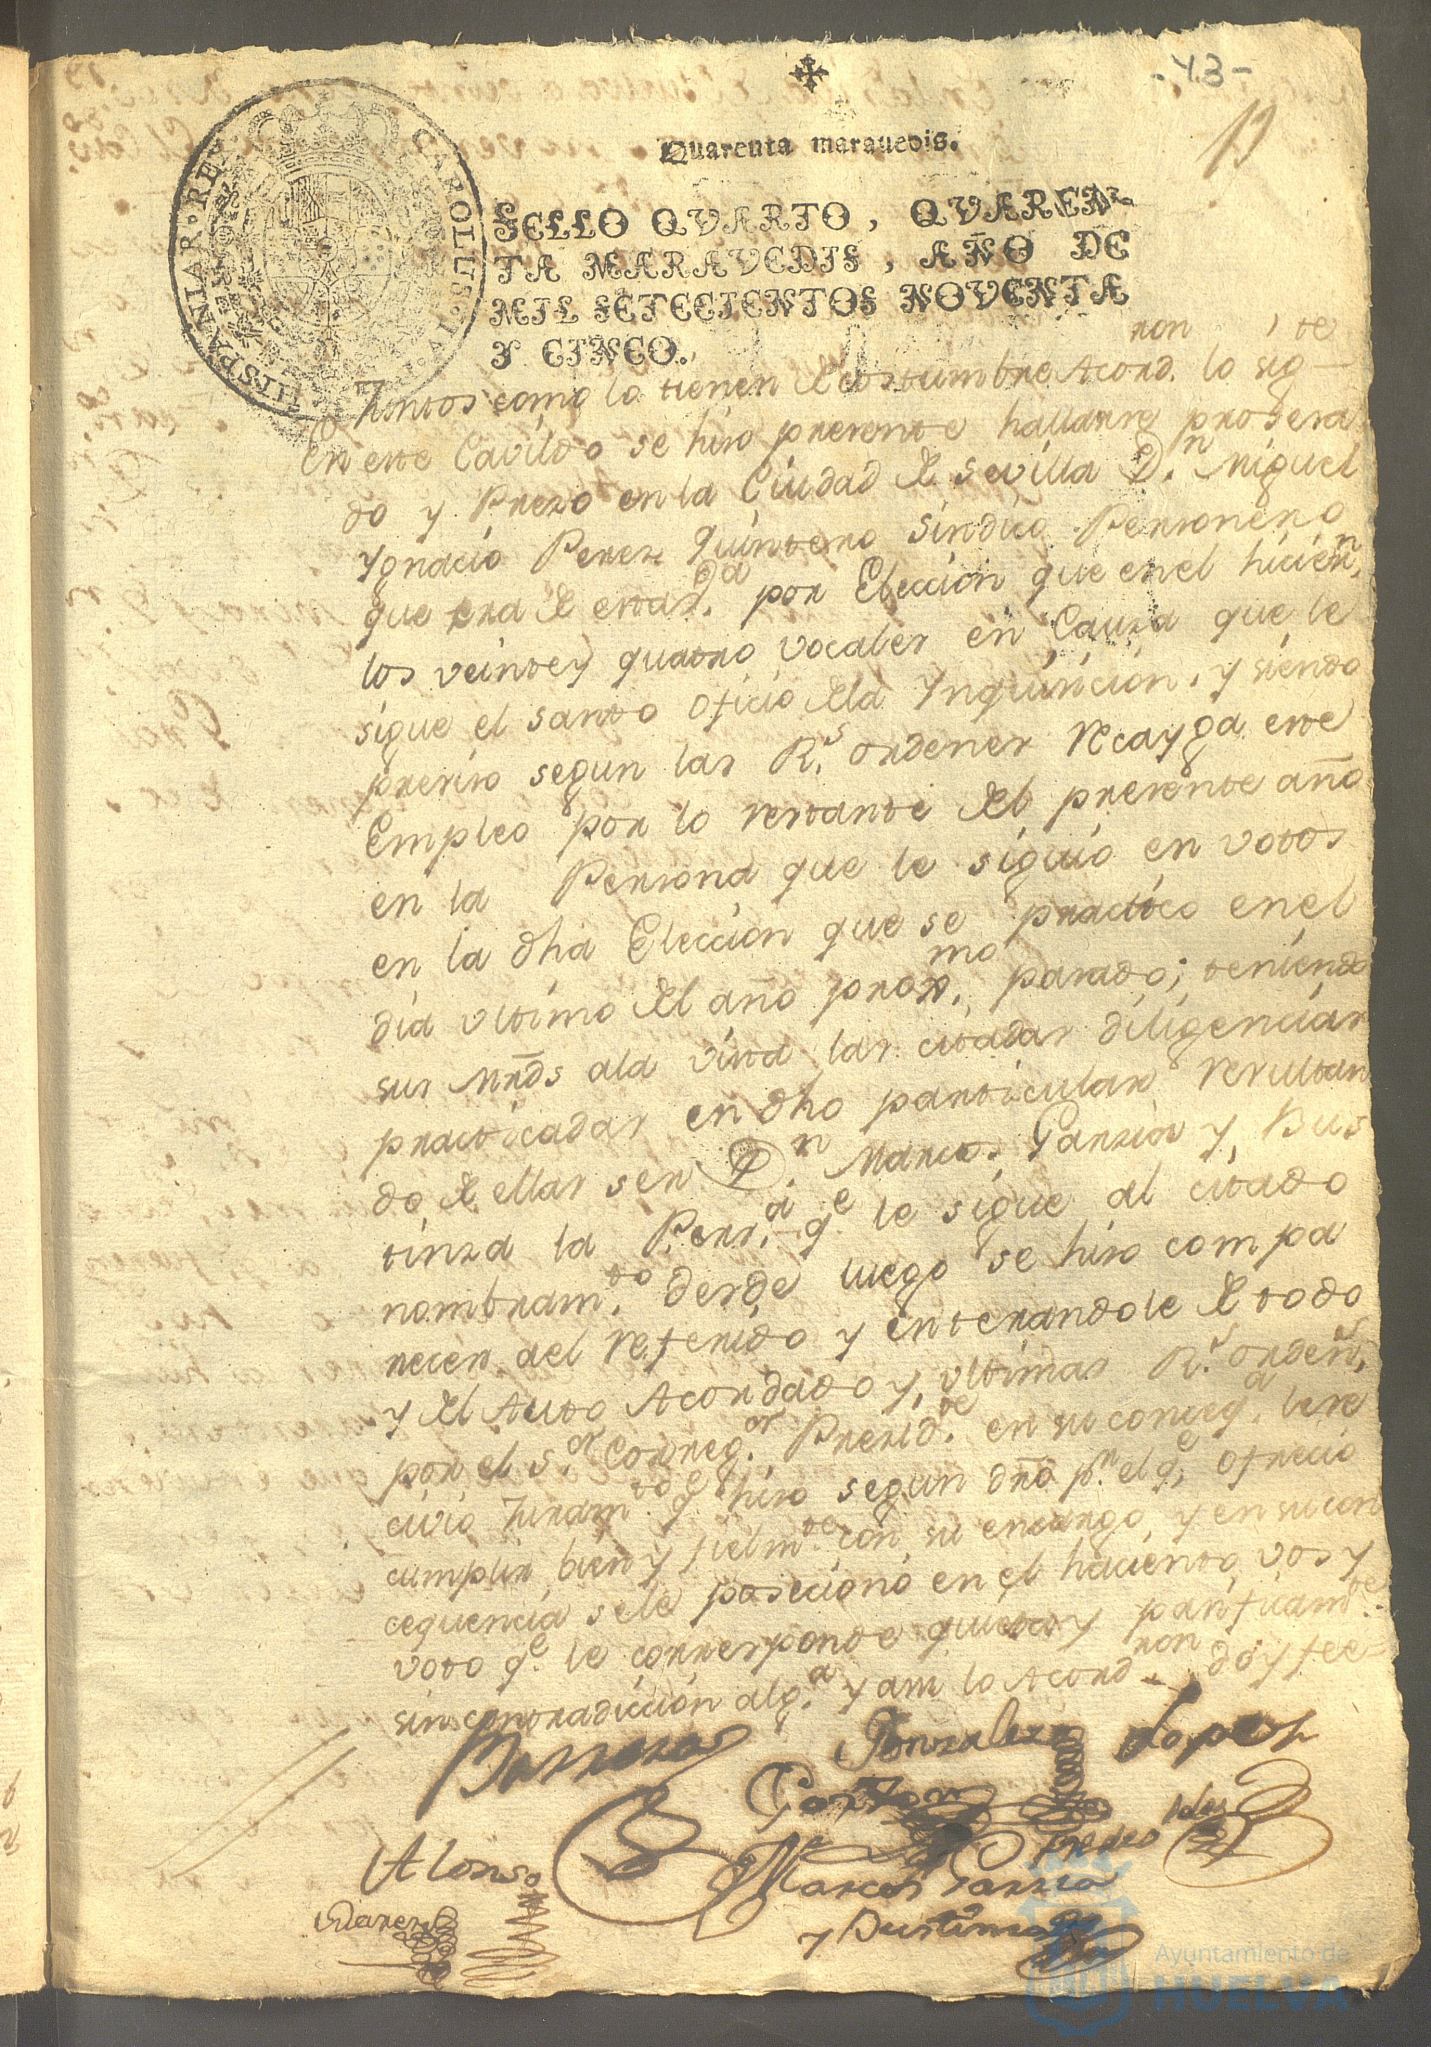 -43-
Quarenta maravedis.
SELLO QVARTO, QVAREN-
TA MARAVEDIS, AÑO DE
MIL SETECIENTOS NOVENTA
Y CINCO.
CAROLUS·IV·D·G·HISPANIAR·REX
Juntos como lo tienen de costumbre Acord.ron lo sig.te
En este Cavildo se hiso presente hallarse prosesa
do y Preso en la Ciudad de Sevilla D.n Miguel
Ygnacio Peres Quintero Sindico Personero
que era de esta por Eleccion que en el hicier.n
los veinte y quatro vocales en Causa que le
sigue el santo oficio de la Ynquisicion, y siendo
presiso segun las R.s ordenes recayga este
Empleo por lo restante del presente año
en la Persona que le siguió en votos
en la dha Eleccion que se practico en el
dia ultimo del año prox.mo pasado; teniendo
sus Mrds a la vista las citadas diligencias
practicadas en dho particular resultan
do de ellas ser D.n Marcos Garzia y Bus
tinza la Pers.a q.e le sigue al citado
nombram.to desde luego se hiso compa
recer al referido y enterandole de todo
y del Auto Acordado y ultimas R.s orden.s
por el S.or Correg.or Presid.te en su conseq.a le re
civió Juram.to q.e hiso segun dro p.r el q.e ofrecio
cumplir bien y fielm.te con su encargo, y en su con
cequencia se le posecionó en el haciento, vos y
voto q.e le corresponde quieta y pasificam.te
sin contradiccion alg.a y assi lo Acord.ron doy fee
Barreras
Gonzalez
Lopez
Garzon
Alonso
Marcos Garzia
y Bustinza
Ayuntamiento de
HUELVA